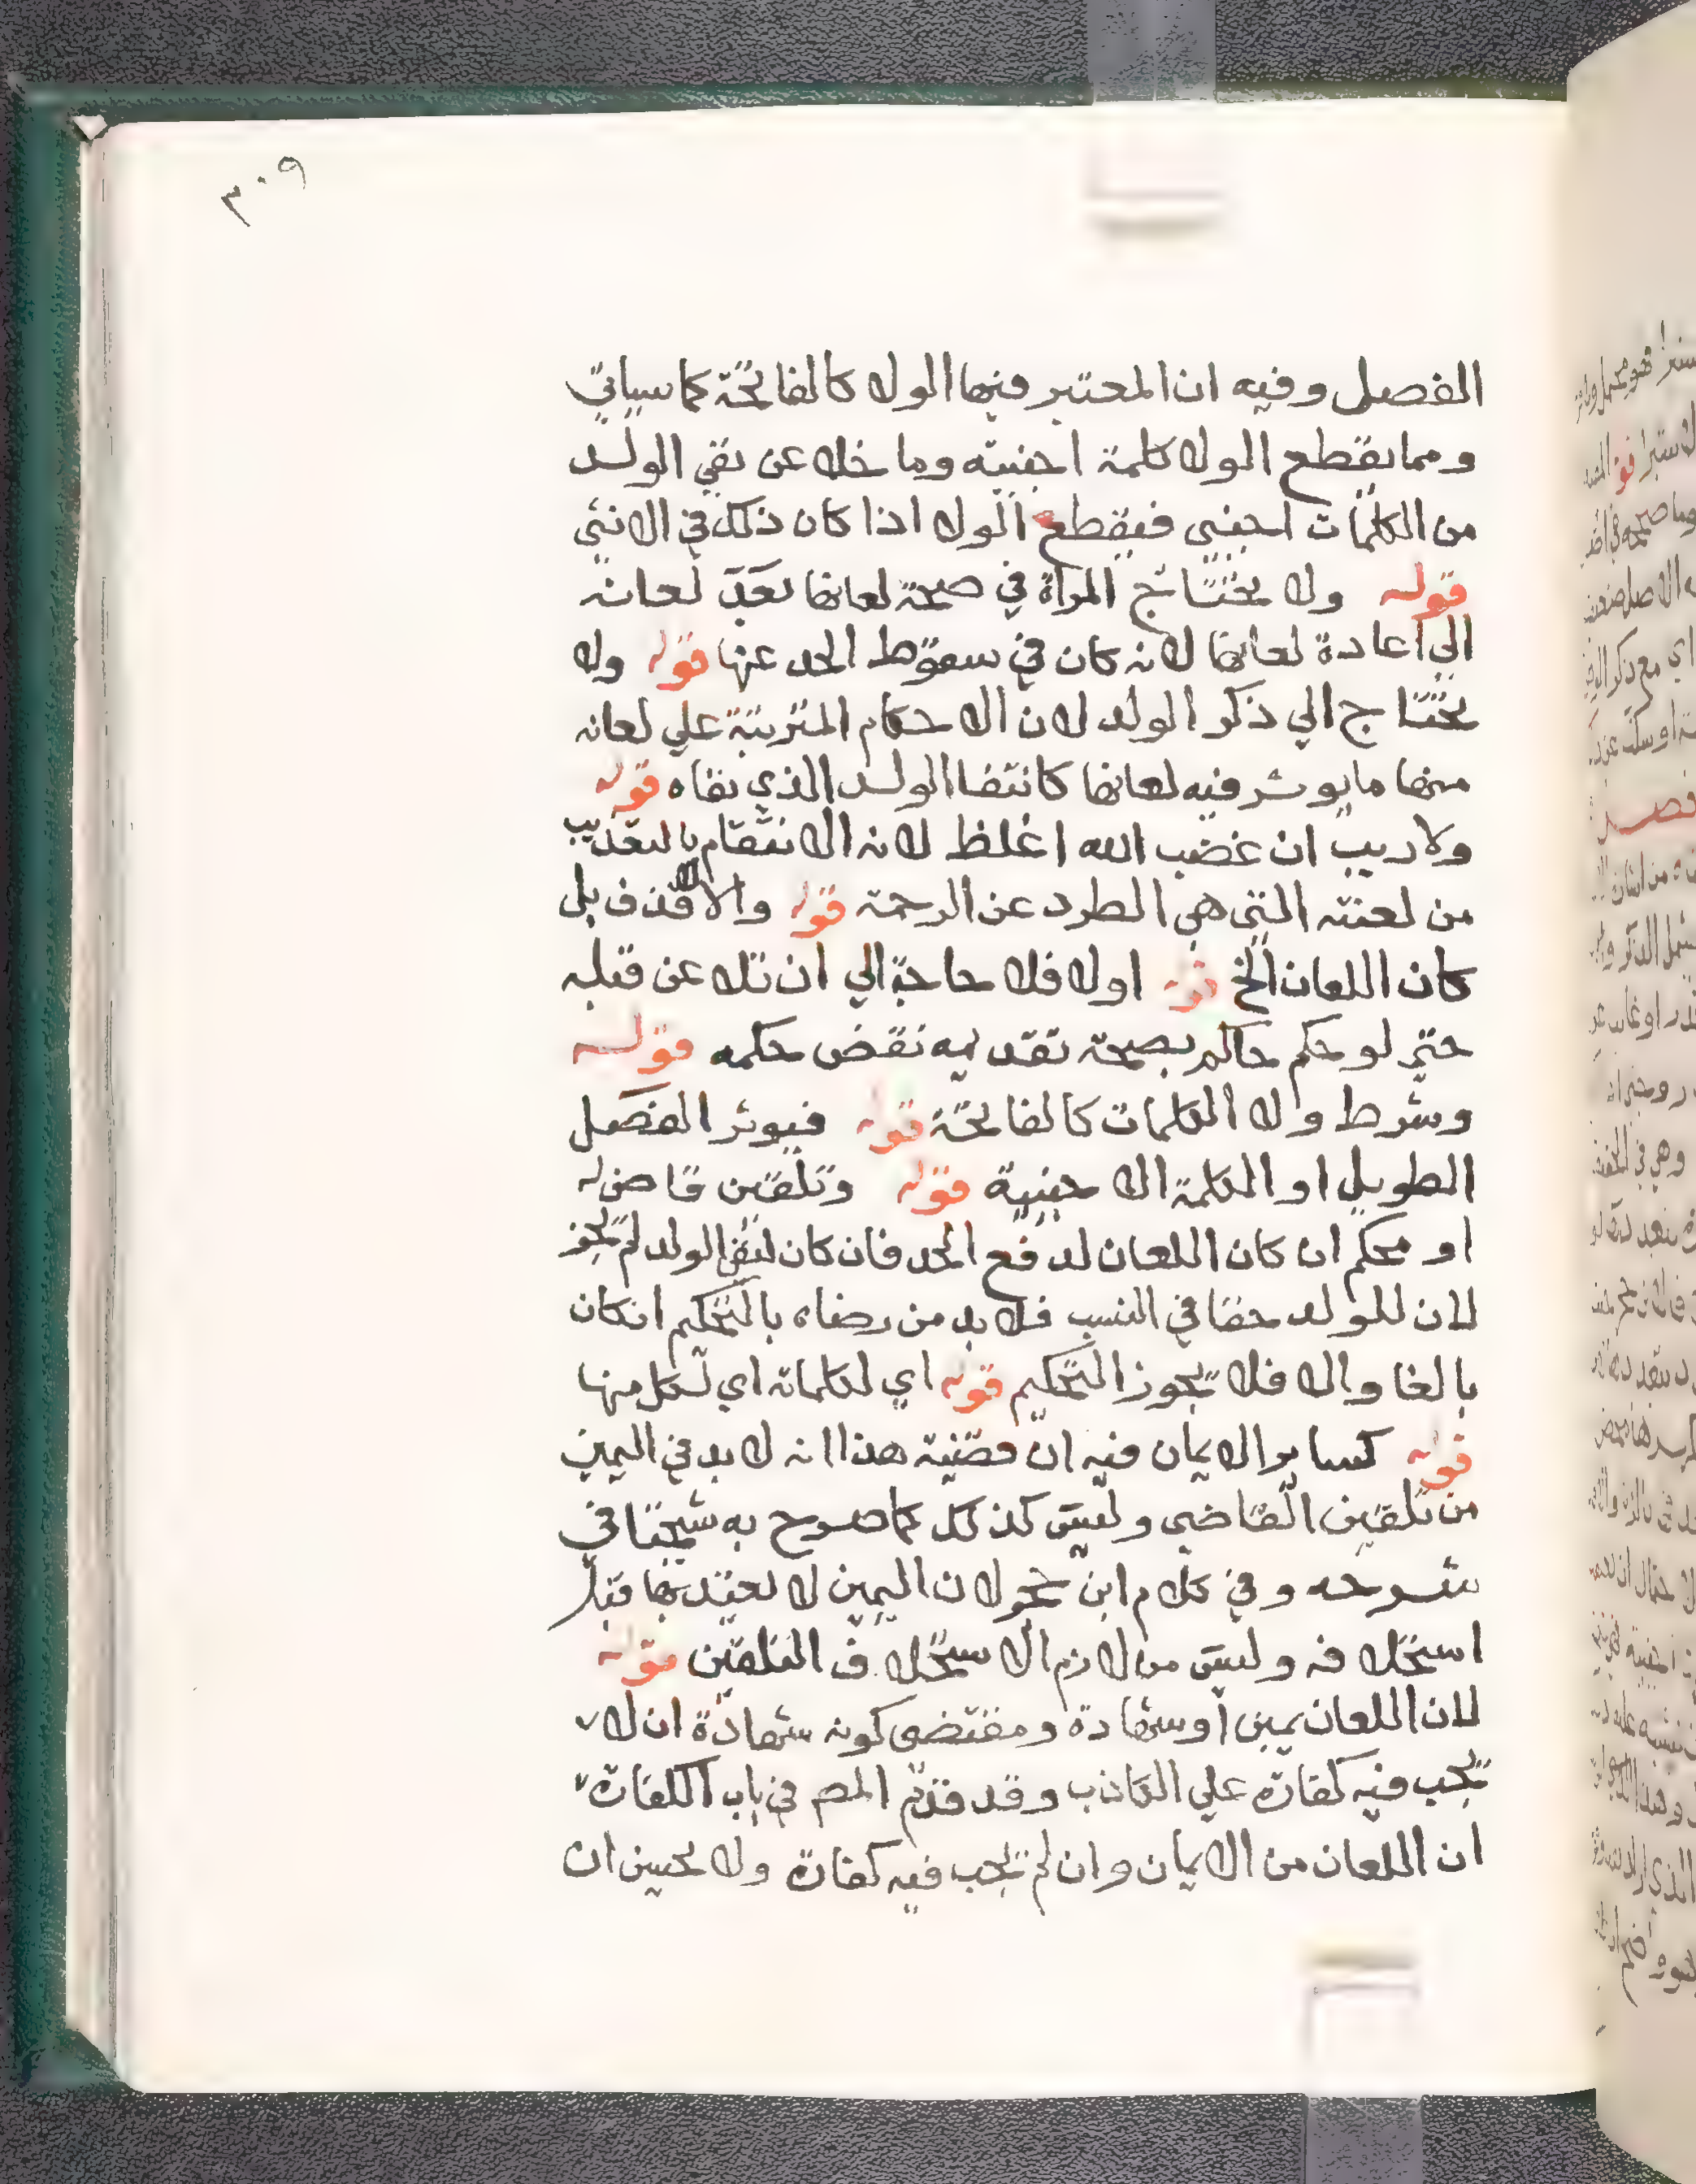 ٣٠٩
الفصل وفيه ان المعتبر فيها الولا كالفاتحة كما سياتي
ومما يقطع الولا كلمة اجنبية وما خلا عن نفي الولد
من الكلمات اجنبي فيقطع الولا اذا كان ذلك في الانثي
قوله ولا يحتاج المراة في صحة لعانها بعد لعانه
الي اعادة لعانها لانه كان في سقوط الحد عنها قوله ولا
يحتاج الي ذكر الولد لان الاحكام المترتبة علي لعانه
منها ما يوثر فيه لعانها كانتفا الولد الذي نفاه قوله
ولاريب ان غضب الله اغلظ لانه الانتقام بالتعذيب
من لعنته التي هي الطرد عن الرحمة قوله والا قذف بل
كان اللعان الخ قوله اولا فلا حاجة الي ان تلا عن قبله
حتي لو حكم حاكم بصحة تقديمه نقض حكمه قوله
وشرط ولا الكلمات كالفاتحة قوله فيوثر الفصل
الطويل او الكلمة الاجنبية قوله وتلقين قاض له
او محكم ان كان اللعان لدفع الحد فان كان لنفي الولد لم يجز
لان للولد حقا في النسب فلا بد من رضاه بالتحكيم ان كان
بالغا والا فلا يجوز التحكيم قوله اي لكلماته اي لكل منها
قوله كساير الايمان فيه ان قضية هذا انه لا بد في اليمين
من تلقين القاضي وليس كذلك كما صرح به شيخنا في
شرحه وفي كلام ابن حجر لان اليمين لا يعتد بها قبل
استحلافه وليس من لازم الاستحلاف التلقين قوله
لان اللعان يمين او شهادة ومقتضي كونه شهادة ان لا
تجب فيه كفارة علي الكاذب وقد قدم المص في باب الكفارة
ان اللعان من الايمان وان لم تجب فيه كفارة ولا يحسن ان